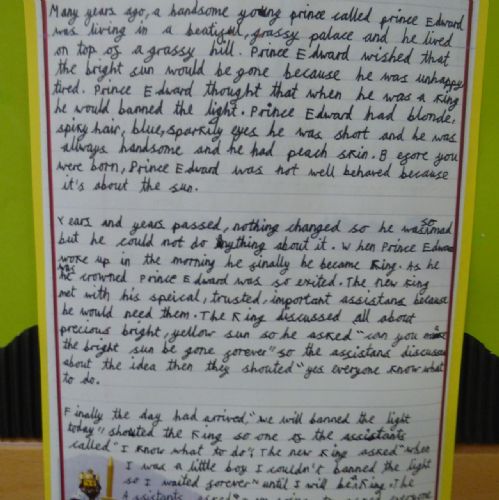 Many years ago, a handsome young prince called prince Edward
was living in a beatiful, grassy palace and he lived
on top of a grassy hill. Prince Edward wished that
the bright sun would be gone because he was unhappy
tired. Prince Edward thought that when he was a King
he would banned the light. Prince Edward had blonde,
spiky hair, blue, sparkily eyes he was short and he was
allways handsome and he had peach skin. Before you
were born, Prince Edward was not well behaved because
it's about the sun.
Years and years passed, nothing changed so he was so mad
but he could not do anything about it. When Prince Edward
woke up in the morning he finally he became King. As he
was he crowned Prince Edward was so exited. The new King
met with his speical, trusted, important assistans because
he would need them. The King discussed all about
precious bright, yellow sun so he asked "can you make
the bright sun be gone forever" so the assistans discussed
about the idea then they shouted "yes everyone know what
to do.
Finally the day had arrived, "we will banned the light
today" shouted the King so one of the assistants
called "I know what to do". The new King asked "when
I was a little boy I couldn't banned the light
so I waited forever" until I will be King. The
Assistants asked